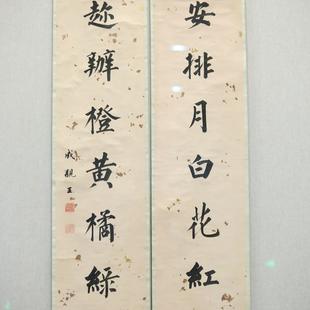 安排月白花紅
趂辦橙黄橘緑
成親王